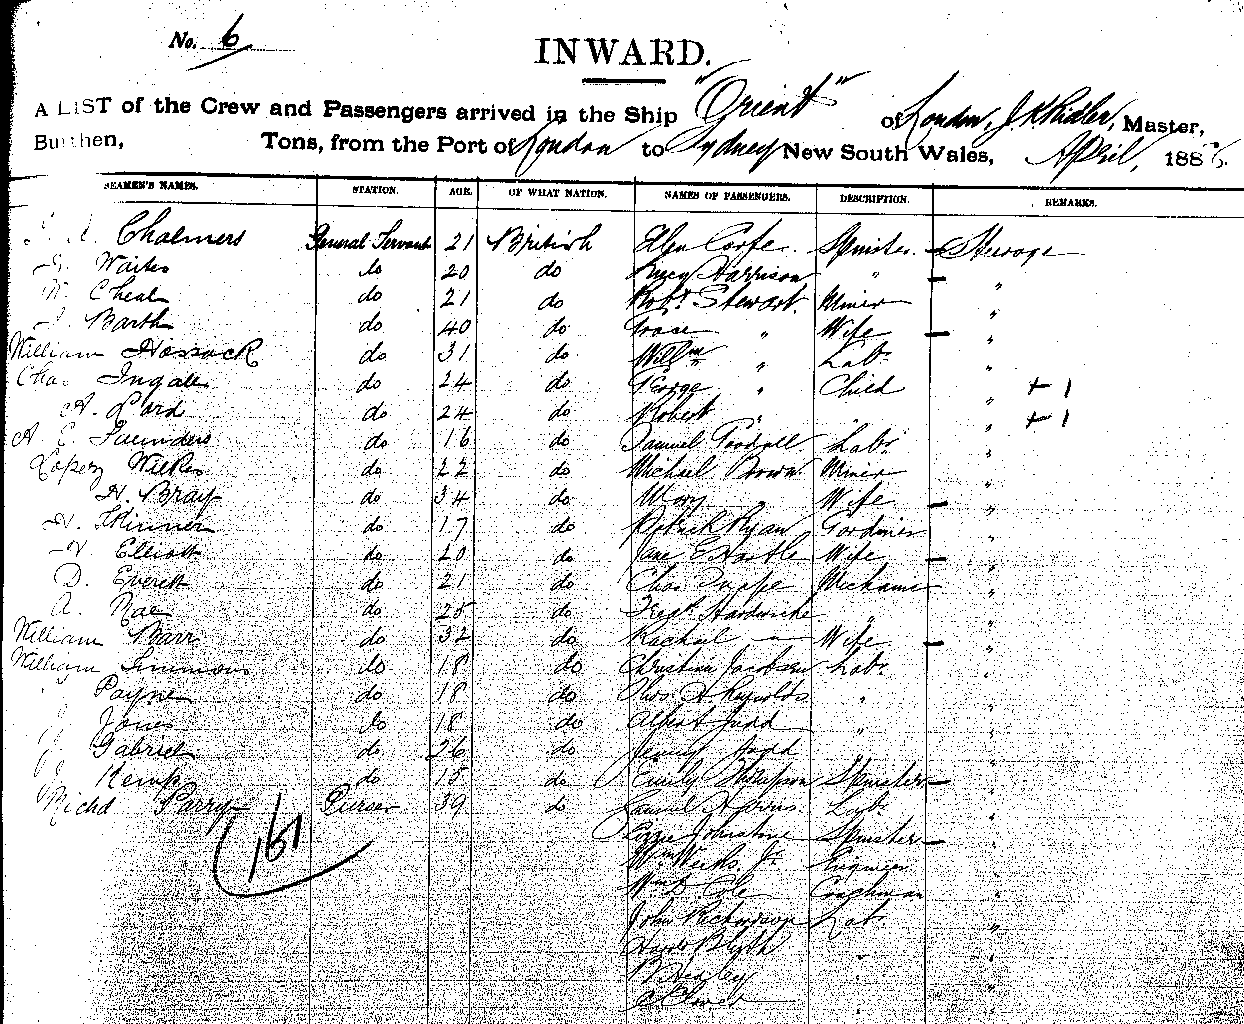 No. 6
INWARD.
A LIST of the Crew and Passengers arrived in the Ship "Orient" of London, J. K. Ridler, Master,
Burthen, Tons, from the Port of London to Sydney New South Wales, April, 188
SEAMEN'S NAMES. STATION. AGE. OF WHAT NATION. NAMES OF PASSENGERS. DESCRIPTION. REMARKS.
Chalmers General Servant 21 British Corfe Spinster Steerage
Waites do 20 do Lucy Harrison " "
W. Cheal do 21 do Robt Stewart Miner "
Barth do 40 do " Wife "
William Hossack do 31 do Willm " Labr "
Chas Ingate do 24 do George " Child " + 1
A. Lard do 24 do Robert " " + 1
A E. Saunders do 16 do Samuel Goodall Labr "
Lopez Wilkes do 22 do Michael Brown Miner "
H. Bray do 34 do Mary " Wife "
H. Skinner do 17 do Patrick Ryan "
Elliott do 20 do Jane E Hastle Wife "
D. Everett do 21 do Chas Mechanic "
A. Rae do 25 do Fredk Hardwicke " "
William Barr do 32 do Rachael " Wife "
William Simmons do 18 do Christian Jacobsen Labr "
Payne do 18 do Thos. A Reynolds " "
J. Jones do 18 do Albert Judd " "
J. Gabriel do 26 do Judd "
J. Kemp do 15 do Emily Thompson Spinster "
Richd Parry Purser 39 do Samuel Labr "
161
Johnstone Spinster "
Wm Weeks Jr. Engineer "
Wm Cole Coachman "
John Richardson Labr "
James Blyth " "
" "